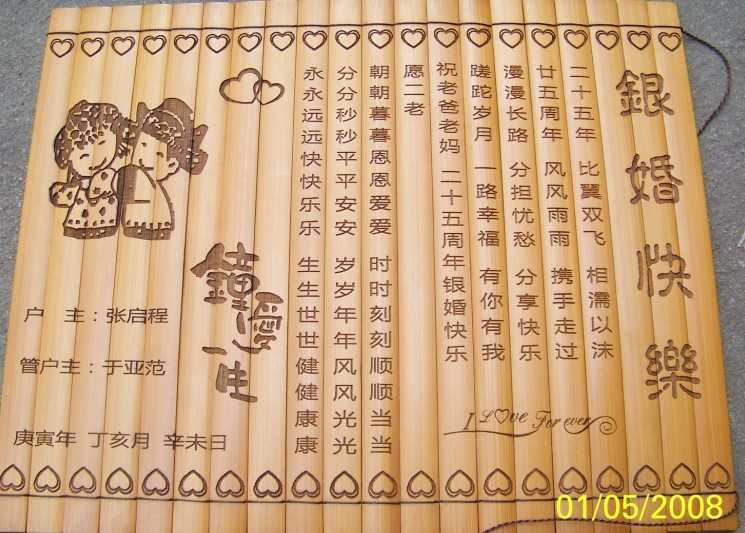 銀婚快樂
二十五年 比翼双飞 相濡以沫
廿五周年 风风雨雨 携手走过
漫漫长路 分担忧愁 分享快乐
蹉跎岁月 一路幸福 有你有我
祝老爸老妈 二十五周年银婚快乐
愿二老
朝朝暮暮恩恩爱爱 时时刻刻顺顺当当
分分秒秒平平安安 岁岁年年风风光光
永永远远快快乐乐 生生世世健健康康
I Love Forever
鐘愛一生
户 主：张启程
管户主：于亚范
庚寅年 丁亥月 辛未日
01/05/2008